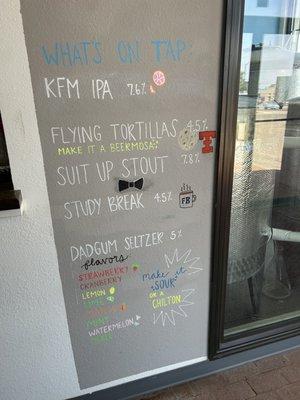 WHAT'S ON TAP:
KFM IPA 7.6%
FLYING TORTILLAS 4.5%
MAKE IT A BEERMOSA!
SUIT UP STOUT 7.8%
STUDY BREAK 4.5%
FR
DADGUM SELTZER 5%
flavors
STRAWBERRY
CRANBERRY
LEMON
LIME
MINT
WATERMELON
make it
a SOUR
OR A
CHILTON